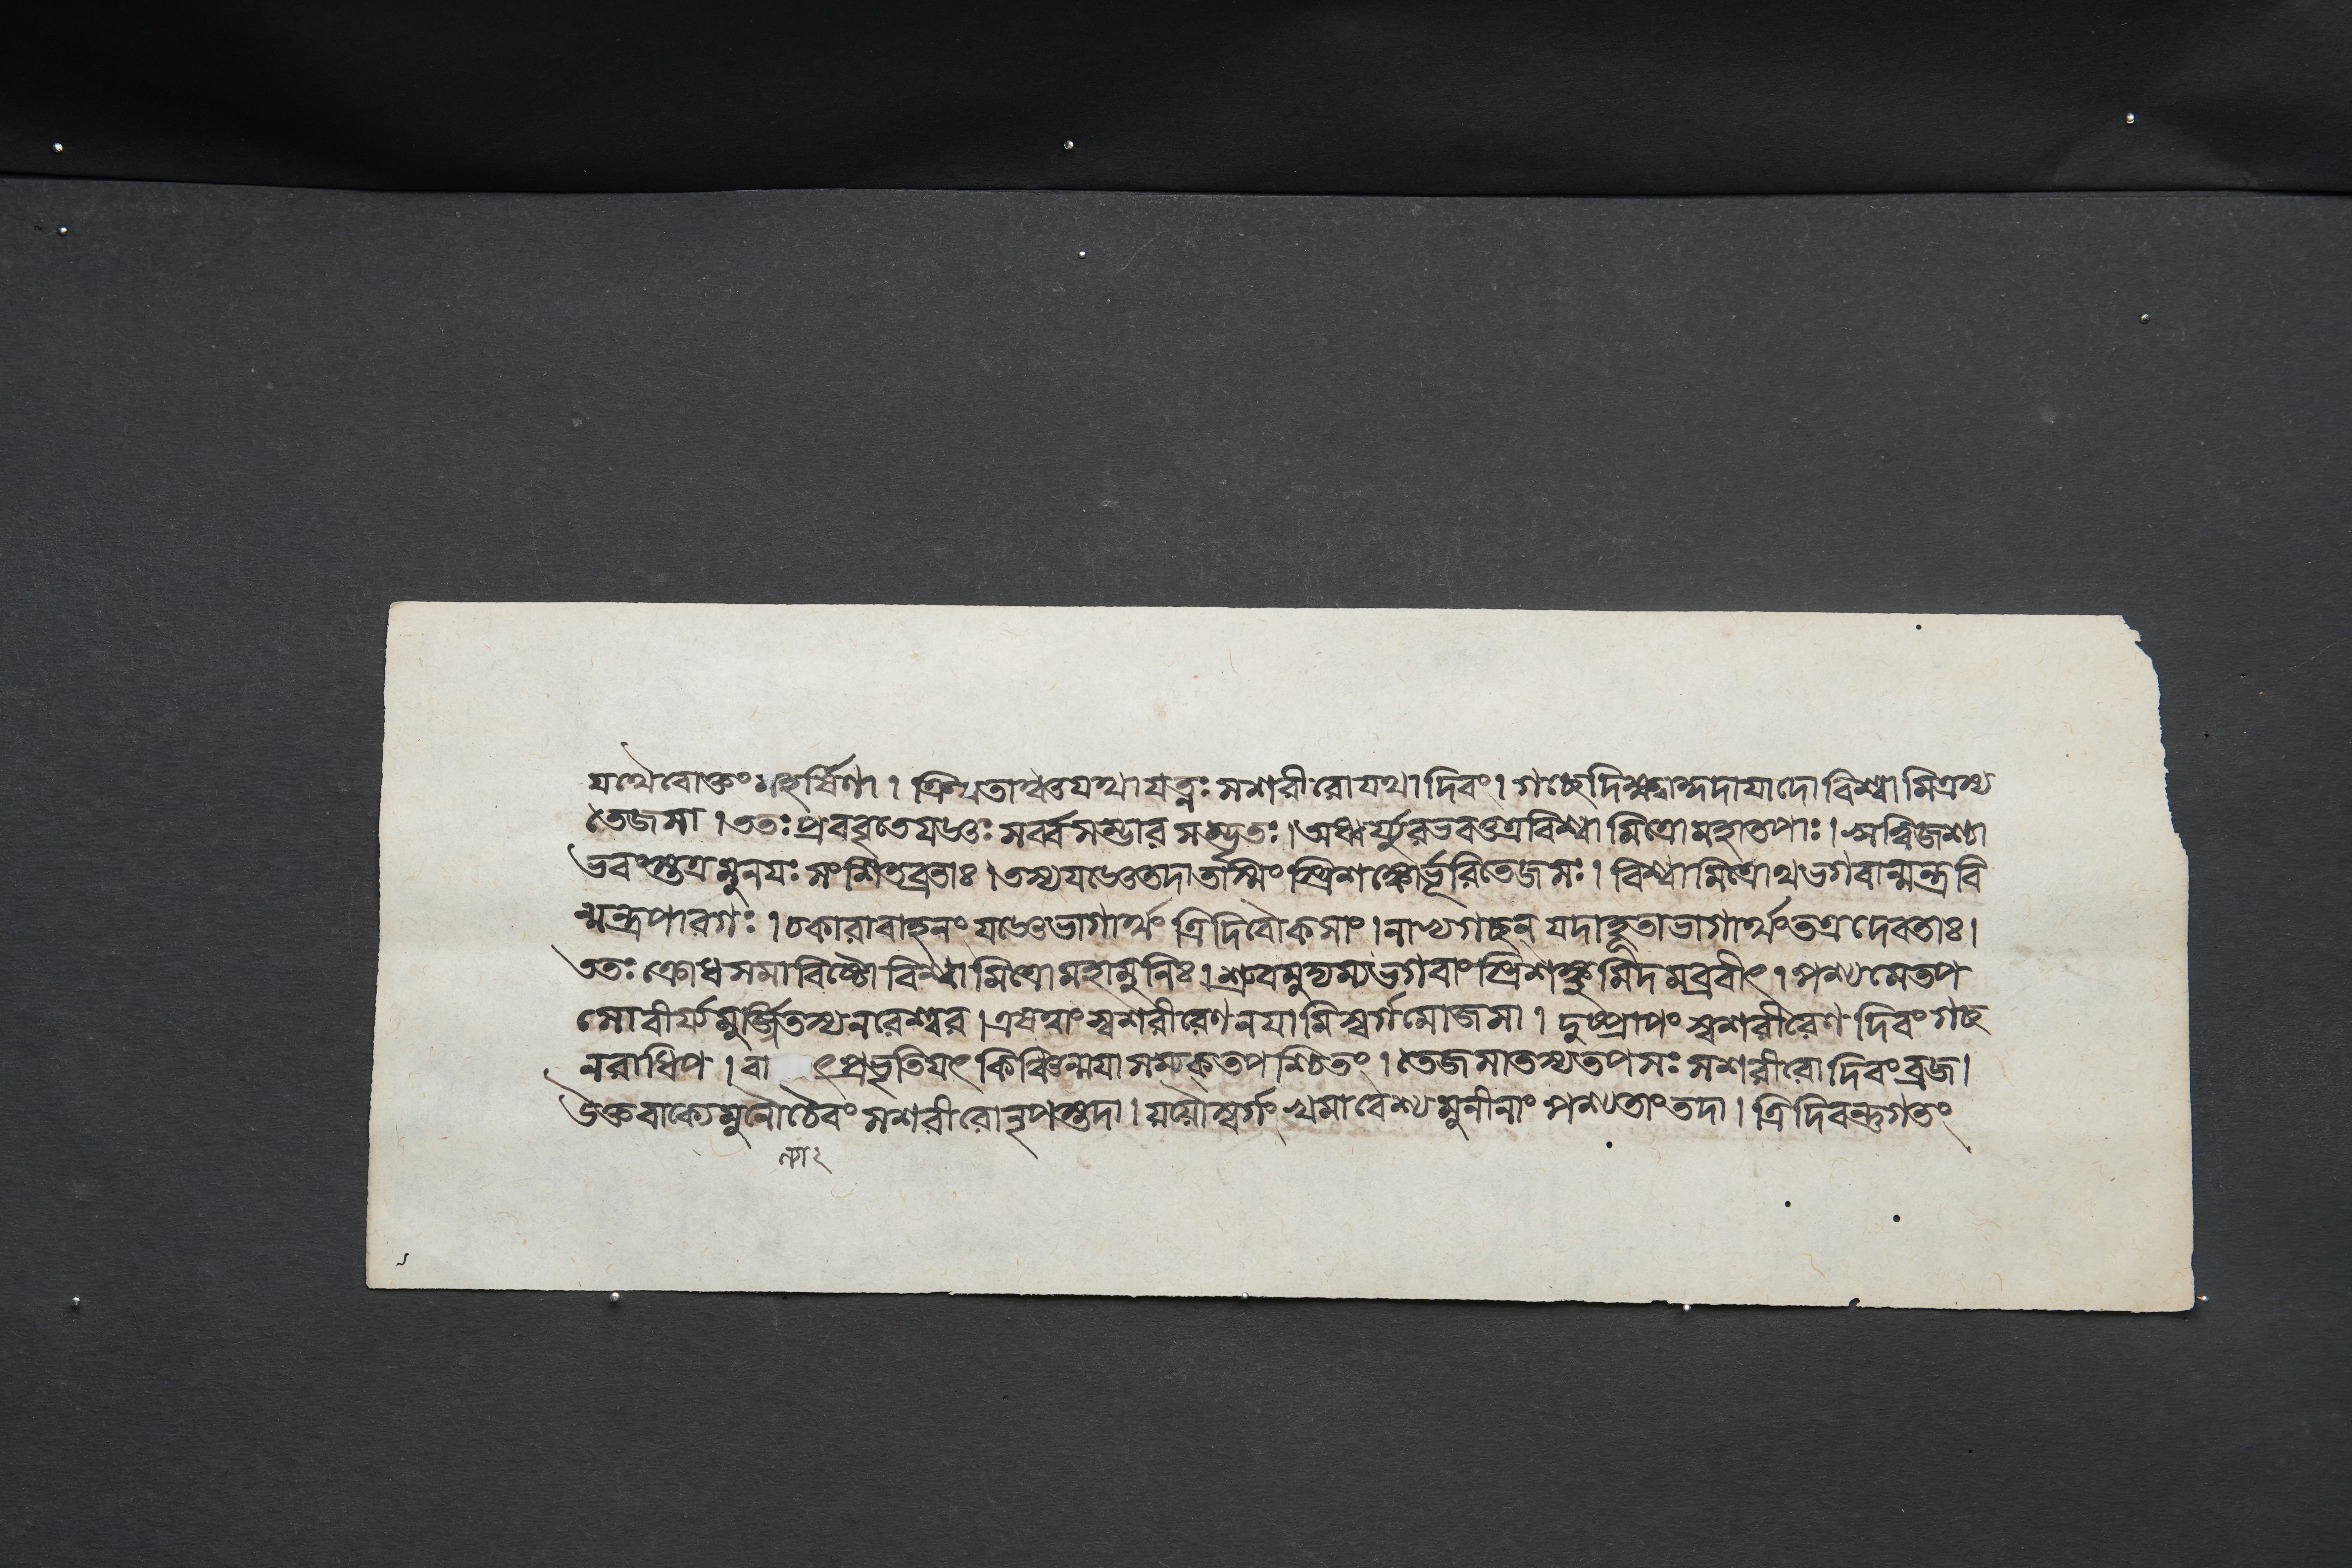 যথৈবোক্তং মহর্ষিণা । ক্রিয়তাম্বতযথা যত্নঃ সশরীরো যথা দিবং । গচ্ছেদিক্ষ্বাকুদাযাদো বিশ্বামিত্রস্য
তেজসা । ততঃ প্রববৃতেযজ্ঞঃ সর্ব্বসম্ভার সম্ভৃতঃ । অধ্বর্য্যুরভবত্তত্রবিশ্বা মিত্রোমহাতপাঃ । ঋত্বিজশ্চা
ভবংস্তত্রমুনযঃ সংশিতব্রতাঃ । তস্যযজ্ঞেতদাতস্মিং স্ত্রিশঙ্কোর্ভূরিতেজসঃ । বিশ্বামিত্রোথভগবান্মন্ত্রবি
ন্মন্ত্রপারগঃ । চকারাবাহনং যজ্ঞেভাগার্থং ত্রিদিবৌকসাং । নাভ্যগচ্ছন্ যদাহূতাভাগার্থংতত্রদেবতাঃ ।
ততঃ ক্রোধসমাবিষ্টো বিশ্বামিত্রোমহামুনিঃ । শ্রুবমুদ্যম্যভগবাং স্ত্রিশঙ্কুমিদমব্রবীৎ । পশ্যমেতপ
সোবীর্য্যমূর্জ্জিতস্যনরেশ্বর । এষত্বাং স্বশরীরেণনযামিস্বর্গমোজসা । দুষ্প্রাপং স্বশরীরেণ দিবংগচ্ছ
নরাধিপ । বা ৎপ্রভৃতিযৎ কিঞ্চিন্মযাসম্যক্তপশ্চিতং । তেজসাতস্যতপসঃ সশরীরো দিবংব্রজ ।
উক্তবাক্যেমুনৌচৈবং সশরীরোনৃপস্তদা । যযৌস্বর্গং খমাবেশ্যমুনীনাং পশ্যতাংতদা । ত্রিদিবন্তুগতং